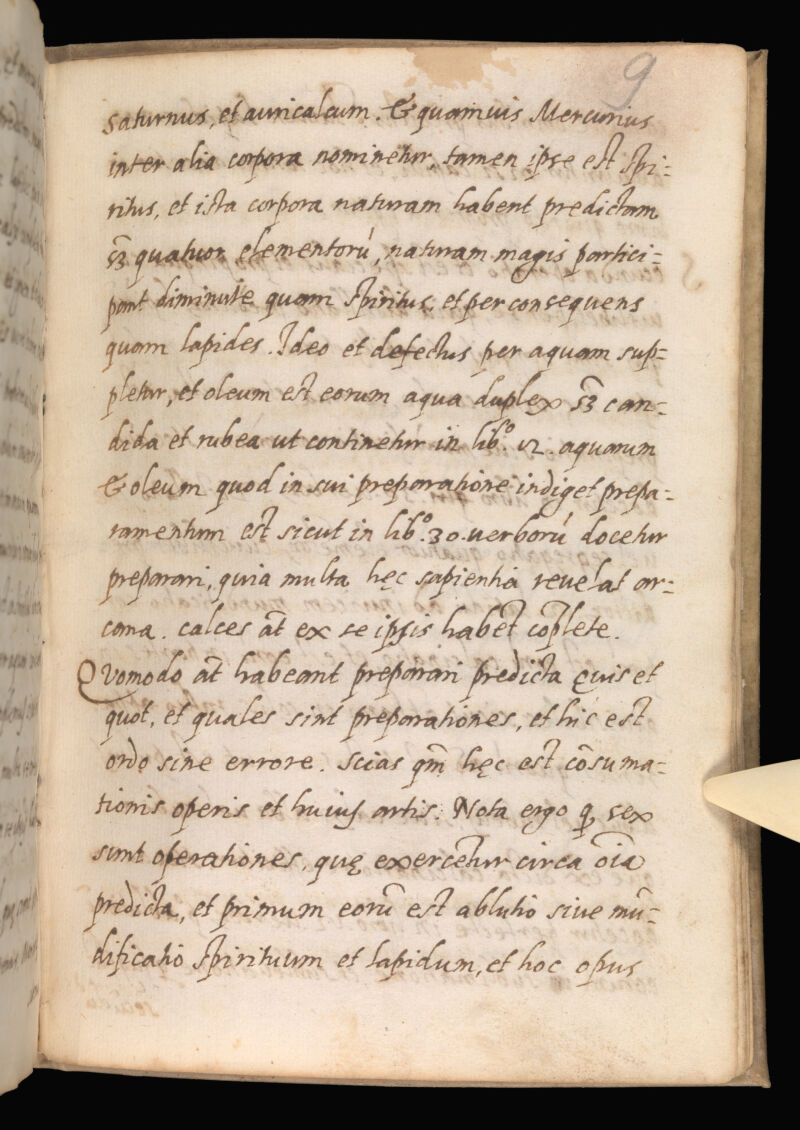 9
saturnus, et auricalcum. & quamuis Mercurius
inter alia corpora nominetur, tamen ipse est spi-
ritus, et ista corpora naturam habent predictam
sꝫ quatuor elementorũ, naturam magis partici-
pant diminute quam spiritus, et per consequens
quam lapides. Ideo et defectus per aquam sup-
pletur, et oleum est eorum aqua duplex sꝫ can-
dida et rubea ut continetur in libº. 12. aquarum
& oleum quod in sui preparatione indiget prepa-
ramentum est sicut in libº. 30. uerborũ docetur
preparari, quia multa hęc sapientia reuelat ar-
cana. calces at̃ ex se ipsis habet cõplete.
Quomodo at̃ habeant preparari predicta quis et
quot, et quales sint preparationes, et hic est
ordo sine errore. scias qm̃ hęc est cõsuma-
tionis operis et huius artis. Nota ergo ꝙ sex
sunt operationes, quę exercẽtur circa oĩa
predicta, et primum eorũ est ablutio siue mũ-
dificatio spirituum et lapidum, et hoc opus